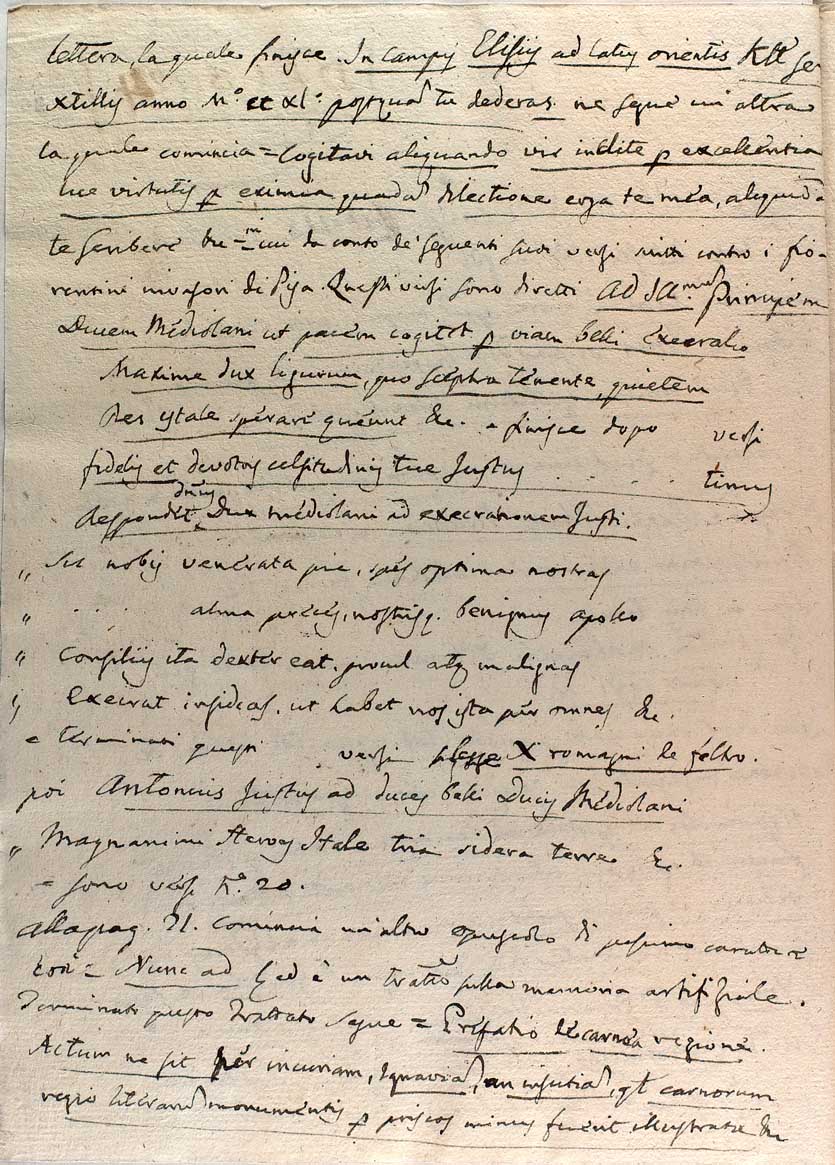 lettera, la quale finisce. In campis Elisiis ad latus orientis Klł se
xtillis anno M.º et XL.º postquā tu dederas. ne segue un altra
la quale comincia = Cogitavi aliquando vir inclite p excellentia
tue virtutis p eximia quadā dilectione erga te mea, aliquid a
te scribere in cui da conto de' seguenti suoi versi contro i fio-
rentini invasori di Pisa. Questi versi sono diretti ad Ill.mum principem
Ducem Mediolani ut pacem cogitet p viam belli execratio
Maxime dux ligurum, quo sceptra tenente, quietem
Res ytale sperare queunt &c. = finisce dopo versi
fidelis et devotus celsitudinis tue Justus . . . . . timus
Respondet dnus Dux mediolani ad execrationem Justi.
„ Sic nobis venerata pie, spes optima nostras
„ . . . alma preces, nostrisq. benignus apollo
„ Consiliis ita dexter eat, procul atq malignas
„ Execrat insidias, ut habet nos ista per omnes &c.
= terminati questi versi X romagni de feltro.
poi Antonius Justus ad duces belli Ducis Mediolani
„ Magnanimi Heroes Itale tria sidera terre &c.
= sono versi N.º 20.
alla pag. 21. comincia un'altro opuscolo di pessimo carattere
così = Nunc ad ed è un trattō sulla memoria artifiziale.
Terminato questo Trattato segue = Prefatio de carnea regione.
Actum ne sit per incuriam, ignaviā, an insutiā, qt carnorum
regio literarū monumentis p priscos minus fuerit illustrata &c